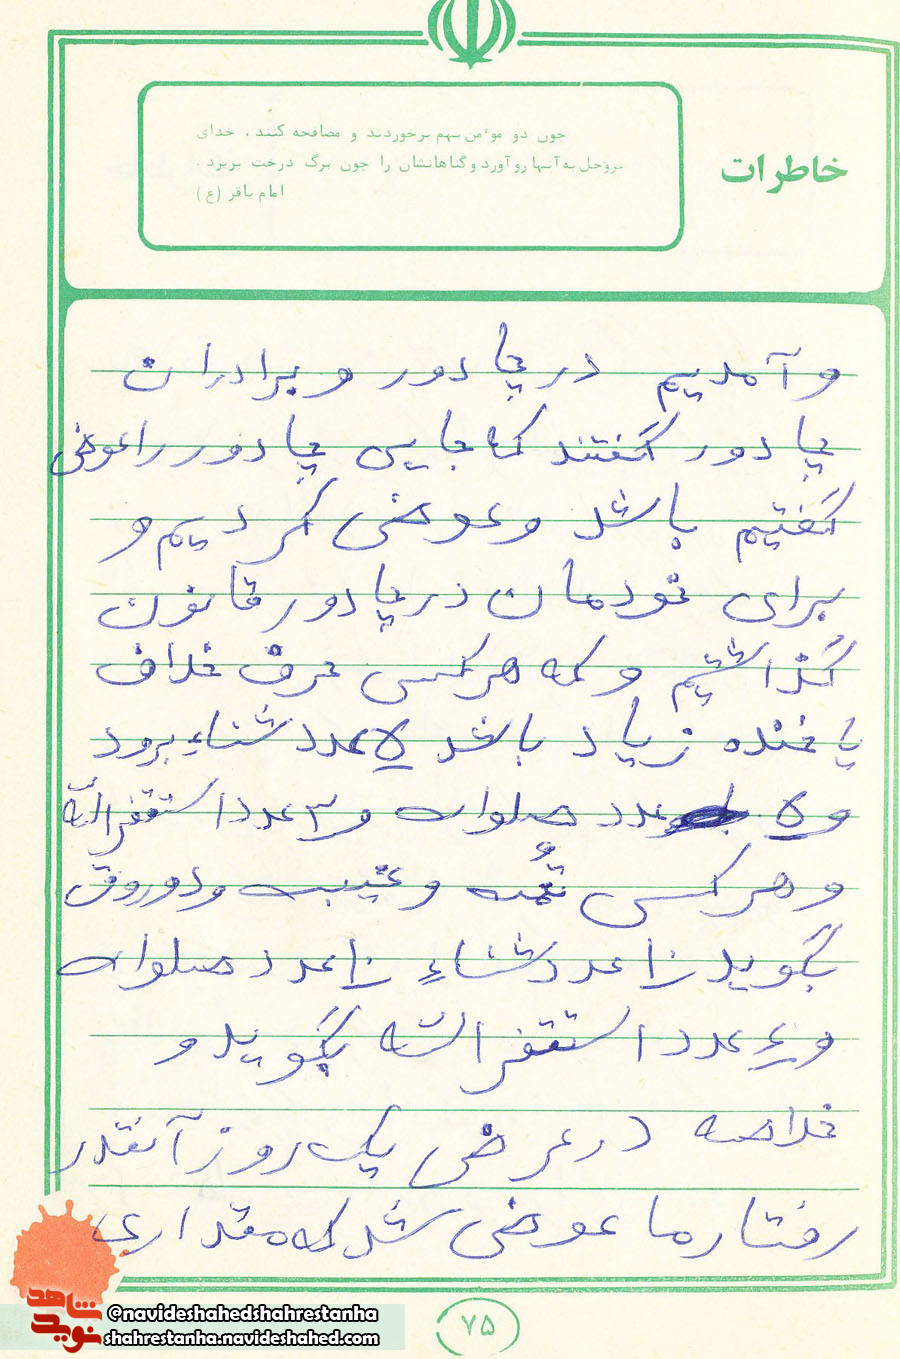 خاطرات
چون دو موءمن بهم برخوردند و مصافحه کنند ، خدای
عزوجل به آنها رو آورد و گناهانشان را چون برگ درخت بریزد .
امام باقر (ع)
و آمدیم در چادور و برادران
چادور گفتند که جایی چادور را عوض
گفتیم باشد و عوض کردیم و
برای خودمان در چادور قانون
گذاشتیم و که هرکسی حرف خلاف
یا خنده زیاد باشد ۵ عدد شناء برود
و ۵ عدد صلوات و ۳ عدد استقفرالله
و هرکسی تُهمته و غیبت و دوروق
بگوید ۱۰ عدد شناءِ ۱۰ عدد صلوات
و ۴ عدد استقفرالله بگوید و
خلاصه در عرض یک روز آنقدر
رفتار ما عوض شد که مقداری
۷۵
شاهد
نوید
@navideshahedshahrestanha
shahrestanha.navideshahed.com